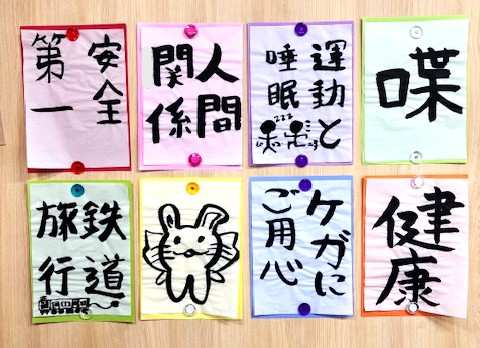 安全
第一
人間
関係
運動と
睡眠
喋
鉄道
旅行
ケガに
ご用心
健康